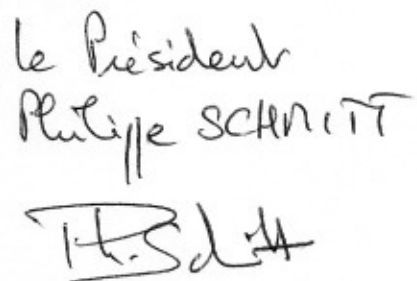 le Président
Philippe SCHMITT
Ph. Schmitt